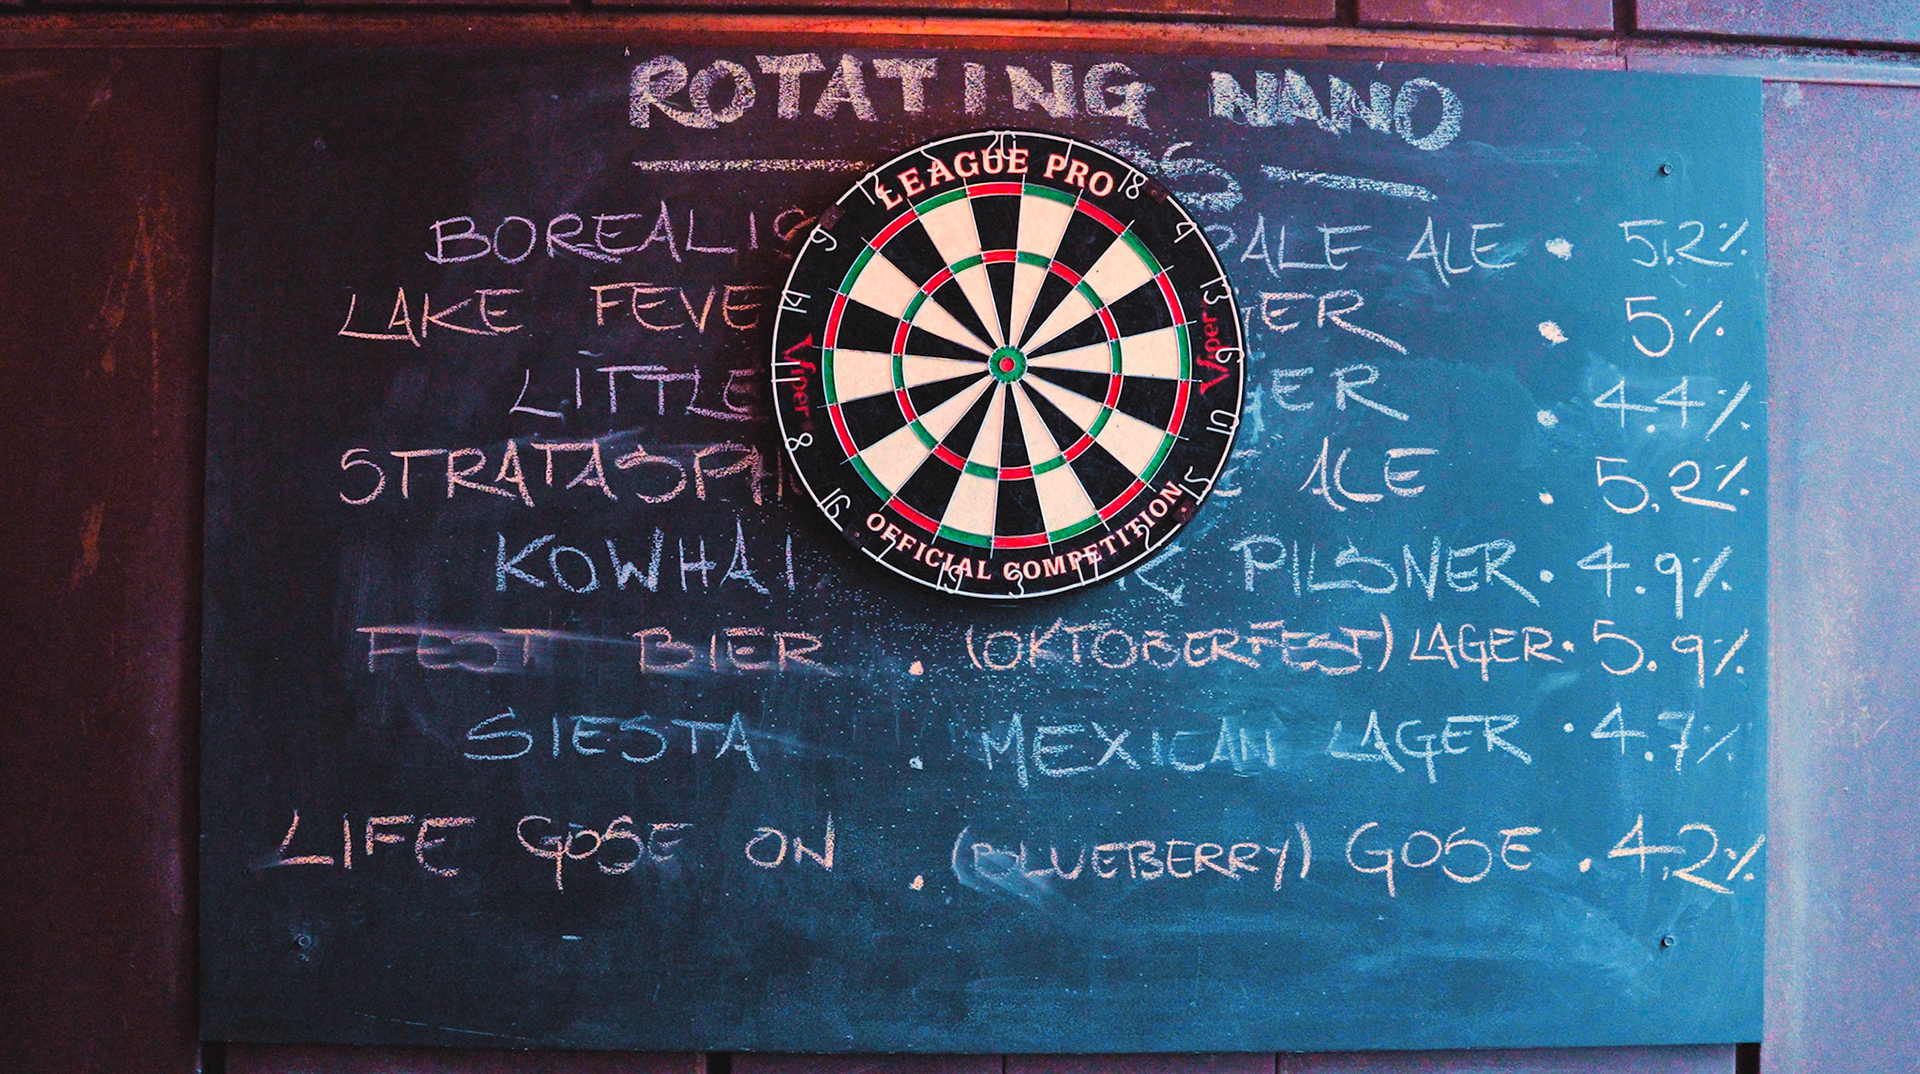 ROTATING NANO
BOREALIS PALE ALE • 5.2%
LAKE FEVE
5%
LITTLE
4.4%
STRATASPH ALE • 5.2%
KOWHAI PILSNER • 4.9%
FEST BIER • (OKTOBERFEST) LAGER • 5.9%
SIESTA • MEXICAN LAGER • 4.7%
LIFE GOSE ON • (BLUEBERRY) GOSE • 4.2%
LEAGUE PRO
Viper
Viper
OFFICIAL COMPETITION
20
18
4
13
6
10
8